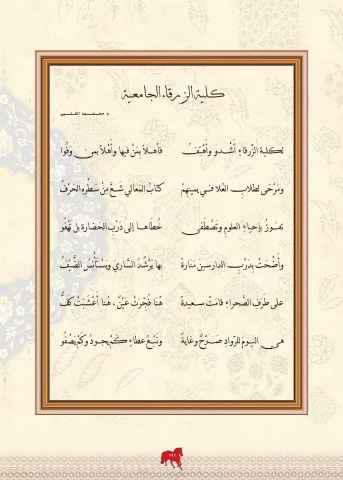 كلية الزرقاء الجامعية
د محمود الشلبي
لكلية الزرقاءِ أَشْدو وأَهْتِفُ فأهلاً بمَنْ فيها وأهْلاً بمن وَفُوا
وَمَرْحَى لطلابِ العُلا في يمينهِمْ كتابُ المَعالي شعَّ مِنْ سَطْرِه الحَرْفُ
تفوزُ بإحياءِ العلومِ وتَصْطَفي خُطاها إلى دَرْبِ الحضارةِ بل تَهْفُو
وأضْحَتْ بِدَرْبِ الدارسينَ مَنارةً بها يَرْشُدُ السَّاري ويَسْتَأْنِسُ الضَّيْفُ
على طَرَفِ الصَّحراءِ قامَتْ سعيدةً هُنا فُجِّرَتْ عَيْنٌ، هُنا أَعْشَبَتْ كَفُّ
هي اليومَ للروّادِ صَرْحٌ وغايةٌ ونَبْعُ عطاءٍ كَمْ يجودُ وكَمْ يَصْفُو